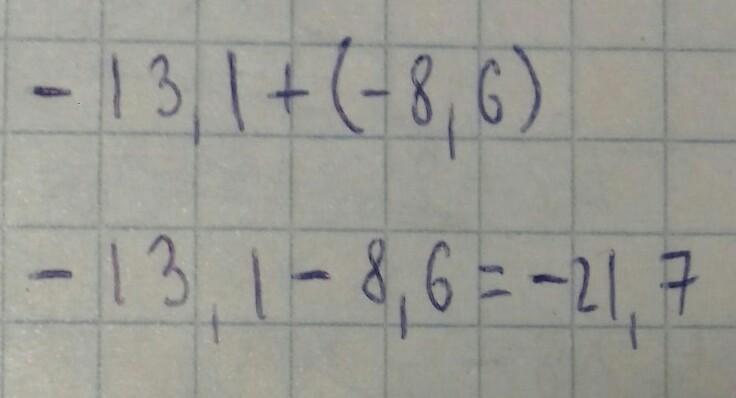 - 13,1 + (-8,6)
- 13,1 - 8,6 = -21,7